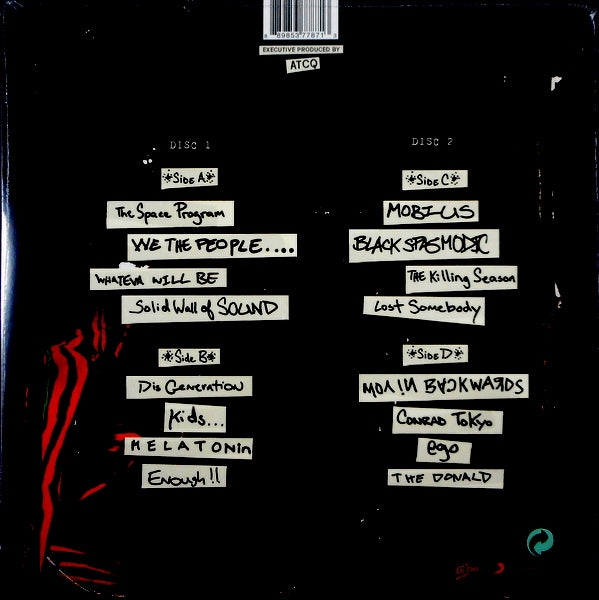 8 89853 77871 3
EXECUTIVE PRODUCED BY
ATCQ
DISC 1
*SIDE A*
The Space Program
WE THE PEOPLE....
WHATEVA WILL BE
Solid Wall of SOUND
*Side B*
Dis Generation
Kids...
MELATONin
Enough!!
DISC 2
*SIDE C*
MOBIUS
BLACK SPASMODIC
THE Killing Season
Lost Somebody
*SIDE D*
MOVIN BACKWARDS
CONRAD TOKYO
ego
THE DONALD